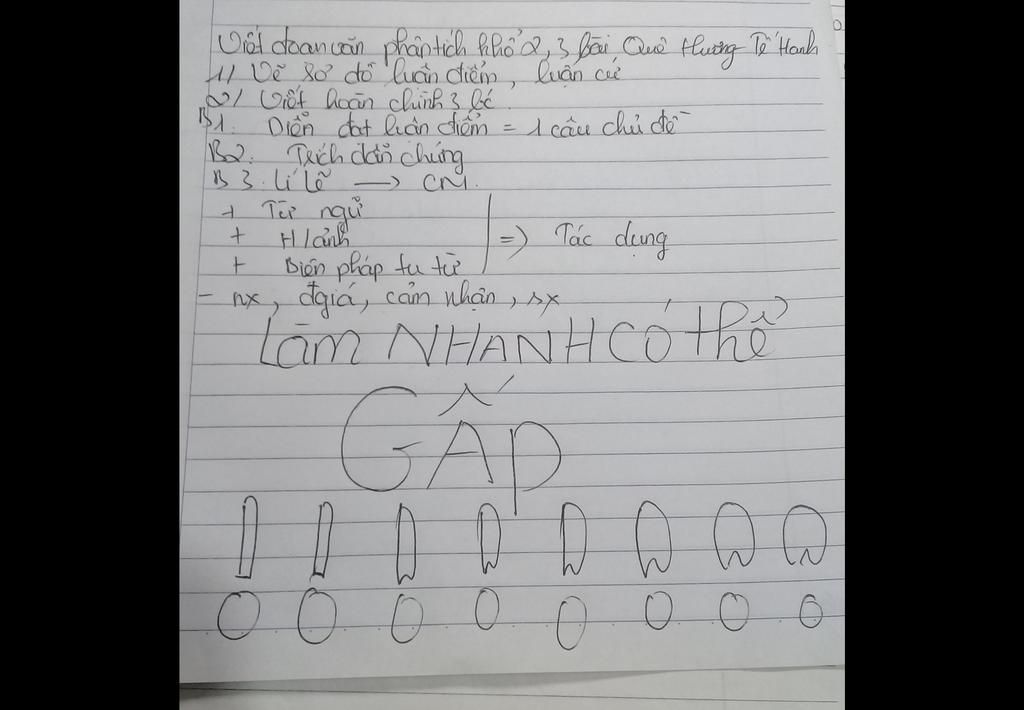 Viết đoạn văn phân tích khổ 2, 3 bài Quê Hương Tế Hanh
1/ Vẽ sơ đồ luận điểm, luận cứ
2/ Viết hoàn chỉnh 3 bc
B1. Diễn đạt luận điểm = 1 câu chủ đề
B2. Trích dẫn chứng
B3. Lí lẽ → CM.
+ Từ ngữ
+ H/ảnh
+ Biện pháp tu từ
=> Tác dụng
- nx, đgiá, cảm nhận, sx
Làm NHANH CÓ thể
GẤP
!!!!!!!!